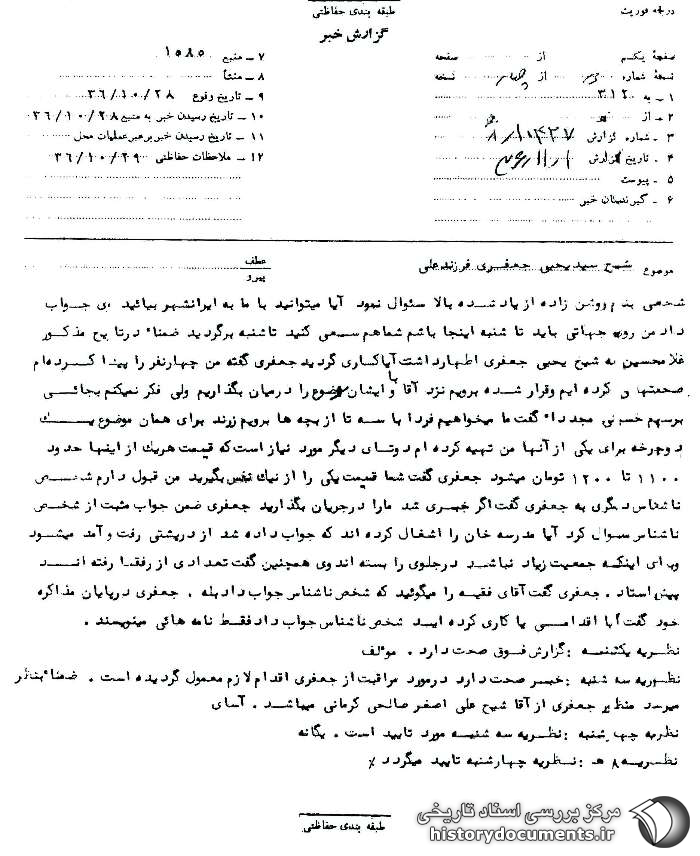 طبقه بندی حفاظتی
درجه فوریت
گزارش خبر
صفحهٔ یکم از صفحه
نسخهٔ شماره از نسخه
۱ - به ۳۱۲
۲ - از
۳ - شماره گزارش
۴ - تاریخ گزارش
۵ - پیوست
۶ - گیرندگان خبر
۷ - منبع ۱۰۵۸۵
۸ - منشأ
۹ - تاریخ وقوع ۳۶/۱۰/۲۸
۱۰ - تاریخ رسیدن خبر به منبع ۳۶/۱۰/۲۸
۱۱ - تاریخ رسیدن خبر برهبر عملیات محل
۱۲ - ملاحظات حفاظتی ۳۶/۱۰/۲۹
موضوع شیخ سید یحیی جعفری فرزند علی
عطف
پیرو
شخصی بنام روشن زاده از یاد شده بالا سئوال نمود آیا میتوانید با ما به ایرانشهر بیائید جواب
داد من روی جهاتی باید تا شنبه اینجا باشم شما هم سعی کنید تا شنبه برگردید ضمنا" در تاریخ مذکور
غلامحسین به شیخ یحیی جعفری اظهار داشت آیا کاری گردید جعفری گفته من چهار نفر را پیدا کرده ام
صحبتهائی کرده ایم و قرار شده برویم نزد آقا و با ایشان موضوع را در میان بگذاریم ولی فکر نمیکنم بجائی
برسیم مجددا" گفت ما میخواهیم فردا با سه تا از بچه ها برویم زرند برای همان موضوع یک
دوچرخه برای یکی از آنها من تهیه کرده ام دوتای دیگر مورد نیاز است که قیمت هر یک از اینها حدود
۱۱۰۰ تا ۱۲۰۰ تومان میشود جعفری گفت شما قیمت یکی را از نیک نفس بگیرید من قبول دارم شخص
ناشناس دیگری به جعفری گفت اگر خبری شد ما را در جریان بگذارید جعفری ضمن جواب مثبت از شخص
ناشناس سوال کرد آیا مدرسه خان را اشغال کرده اند که جواب داده شد از درپشتی رفت و آمد میشود
و برای اینکه جمعیت زیاد نباشد درجلوی را بسته اند وی همچنین گفت تعدادی از رفقا رفته اند
پیش استاد . جعفری گفت آقای فقیه را میگوئید که شخص ناشناس جواب داد بله . جعفری در پایان مذاکره
خود گفت آیا اقدامی یا کاری کرده اید شخص ناشناس جواب داد فقط نامه هائی مینویسند .
نظریه یکشنبه : گزارش فوق صحت دارد . مؤلف
نظریه سه شنبه : خبر صحت دارد در مورد مراقبت از جعفری اقدام لازم معمول گردیده است . ضمنا" بنظر
میرسد منظور جعفری از آقا شیخ علی اصغر صالحی کرمانی میباشد . آسای
نظریه چهارشنبه : نظریه سه شنبه مورد تایید است . یگانه
نظریه ۸ هـ : نظریه چهارشنبه تایید میگردد ٪
طبقه بندی حفاظتی
مرکز بررسی اسناد تاریخی
historydocuments.ir